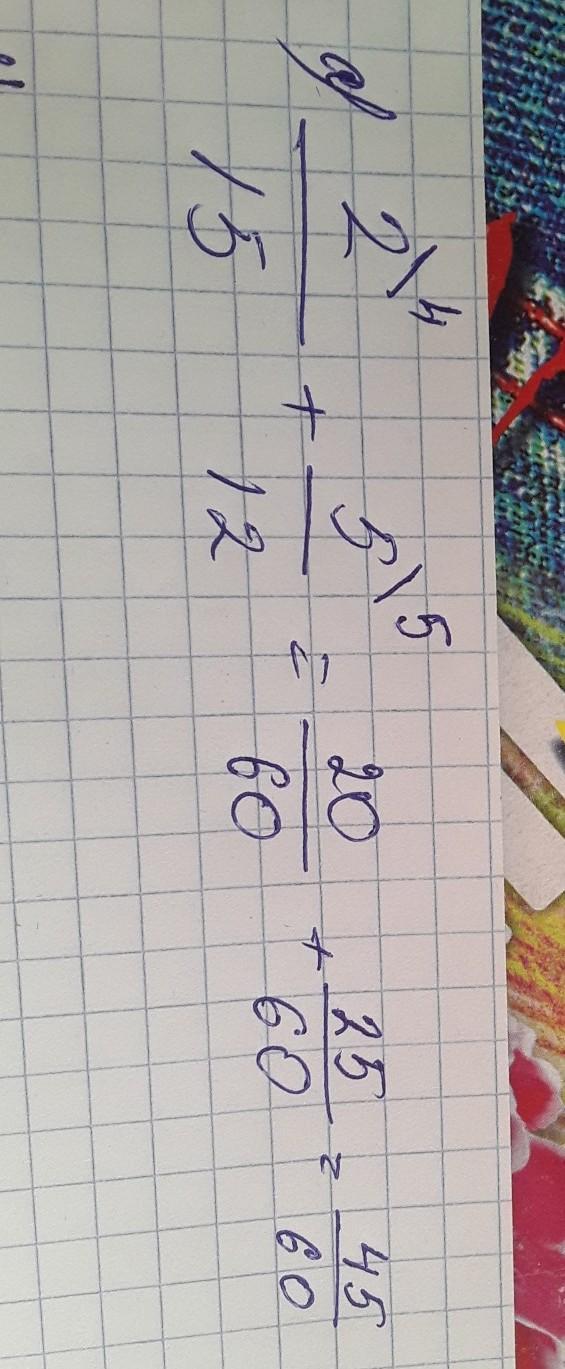 a) 2\4/15 + 5\5/12 = 20/60 + 25/60 = 45/60